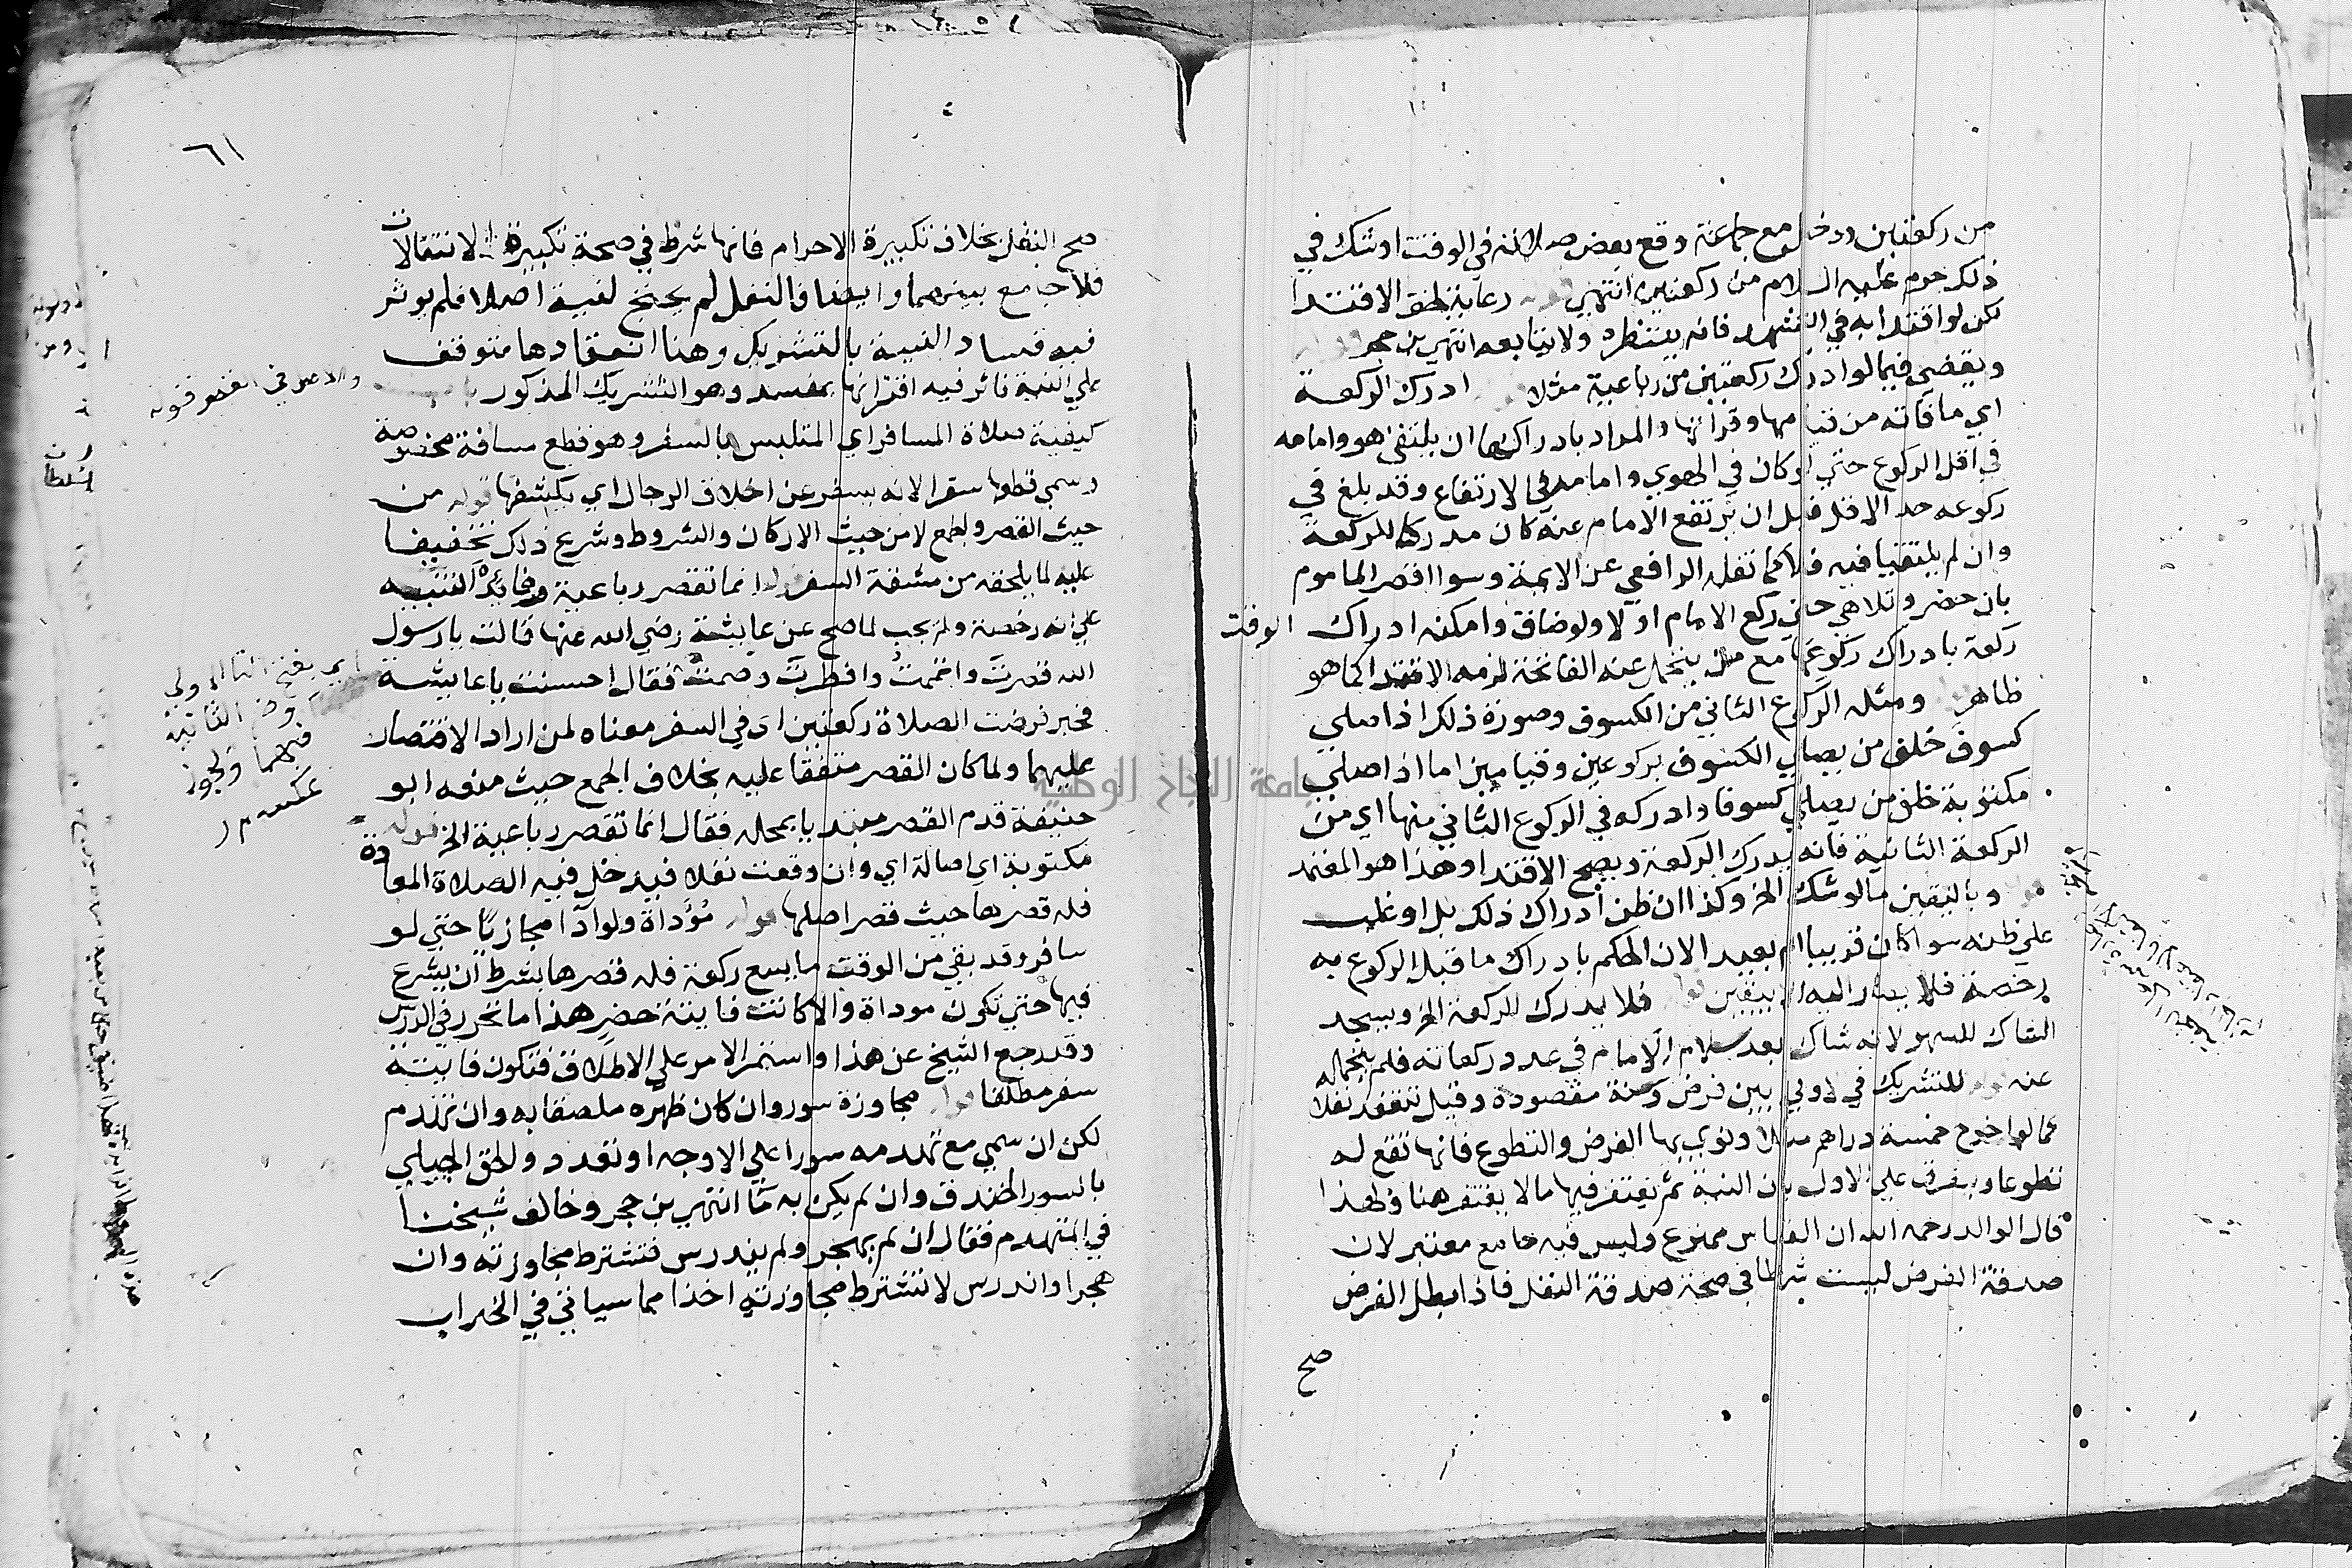 من ركعتين ودخل مع جماعة وقع بعض صلاته في الوقت او شك في
ذلك حرم عليه السلام من ركعتين انتهي قوله رعاية لحق الاقتدا
لكن لو اقتدا به في التشهد فانه ينتظره ولا يتابعه انتهي بن حجر قوله
ويقضي فيما لو ادرك ركعتين من رباعية مثلا قوله ادرك الركعة
اي ما فاته من قيامها وقرأتها والمراد بادراكها ان يلتقي هو وامامه
في اقل الركوع حتي لو كان في الهوي وامامه في الارتفاع وقد بلغ في
ركوعه حد الاقل قبل ان يرتفع الامام عنه كان مدركا للركعة
وان لم يلتقيا فيه فلا كما نقله الرافعي عن الايمة وسوا اقصر الماموم
بان حضر وتلاهي حتي ركع الامام او لا ولو ضاق وامكنه ادراك الوقت
ركعة بادراك ركوعها مع من يتحمل عنه الفاتحة لزمه الاقتدا كما هو
ظاهر قوله ومثله الركوع الثاني من الكسوف وصورة ذلك اذا صلي
كسوف خلف من يصلي الكسوف بركوعين وقيامين اما اذا صلي
مكتوبة خلف من يصلي كسوفا وادركه في الركوع الثاني منها اي من
الركعة الثانية فانه يدرك الركعة ويصح الاقتدا وهذا هو المعتمد
قوله وباليقين ما لو شك الخ وكذا ان ظن ادراك ذلك بل او غلب
علي ظنه سوا كان قريبا ام بعيد الان الحكم بادراك ما قبل الركوع به
رخصة فلا يصار اليه الا بيقين قوله فلا يدرك الركعة الخ ويسجد
الشاك للسهو لانه شاك بعد سلام الامام في عدد ركعاته فلم يتحمله
عنه قوله للتشريك في الاولي بين فرض وسنة مقصودة وقيل تنعقد نفلا
كما لو اخرج خمسة دراهم مثلا ونوي بها الفرض والتطوع فانها تقع له
تطوعا ويفرق علي الاول بان النية ثم يغتفر فيها ما لا يغتفر هنا ولهذا
قال الوالد رحمه الله ان القياس ممنوع وليس فيه جامع معتبر لان
صدقة الفرض ليست شرطا في صحة صدقة النفل فاذا بطل الفرض
صح
٦١
صح النفل بخلاف تكبيرة الاحرام فانها شرط في صحة تكبيرة الانتقالات
فلا جامع بينهما وايضا فالنفل لم يحتج لنية اصلا فلم يوثر
فيه فساد النية بالتشريك وهنا انعقادها متوقف
علي النية فاثر فيه اقترانها بمفسد وهو التشريك المذكور باب
كيفية صلاة المسافر اي المتلبس بالسفر وهو قطع مسافة مخصوصة
وسمي قطعها سفرا لانه يسفر عن اخلاق الرجال اي يكشفها قوله من
حيث القصر والجمع لا من حيث الاركان والشروط وشرع ذلك تخفيفا
عليه لما يلحقه من مشقة السفر قوله انما تقصر رباعية وفائدة التنبيه
علي انه رخصة ولم يجب لما صح عن عايشة رضي الله عنها قالت يا رسول
الله قصرت واتممت وافطرت وصمت فقال احسنت يا عايشة
فخبر فرضت الصلاة ركعتين اي في السفر معناه لمن اراد الاقتصار
عليهما ولما كان القصر متفقا عليه بخلاف الجمع حيث منعه ابو
حنيفة قدم القصر مبتديا بمحله فقال انما تقصر رباعية الخ قوله
مكتوبة اي اصالة اي وان وقعت نفلا فيدخل فيه الصلاة المعادة
فله قصرها حيث قصر اصلها قوله مؤداة ولو ادآ مجازيا حتي لو
سافر وقد بقي من الوقت ما يسع ركعة فله قصرها بشرط ان يشرع
فيها حتي تكون موداة والا كانت فايتة حضر هذا ما تحرر في الدرس
وقد رجع الشيخ عن هذا واستمر الامر علي الاطلاق فتكون فايتة
سفر مطلقا قوله مجاوزة سور وان كان ظهره ملصقا به وان تهدم
لكن ان سمي مع تهدمه سورا علي الاوجه او تعدد والحق الجيلي
بالسور الخندق وان لم يكن به مآ انتهي بن حجر وخالف شيخنا
في المتهدم فقال ان لم يهجر ولم يندرس فتشترط مجاوزته وان
هجر او اندرس لا تشترط مجاوزته اخذا مما سياتي في الخراب
بفتح التا الاولي
الثانية
فيهما ويجوز
عكسه م ر
جامعة النجاح الوطنية